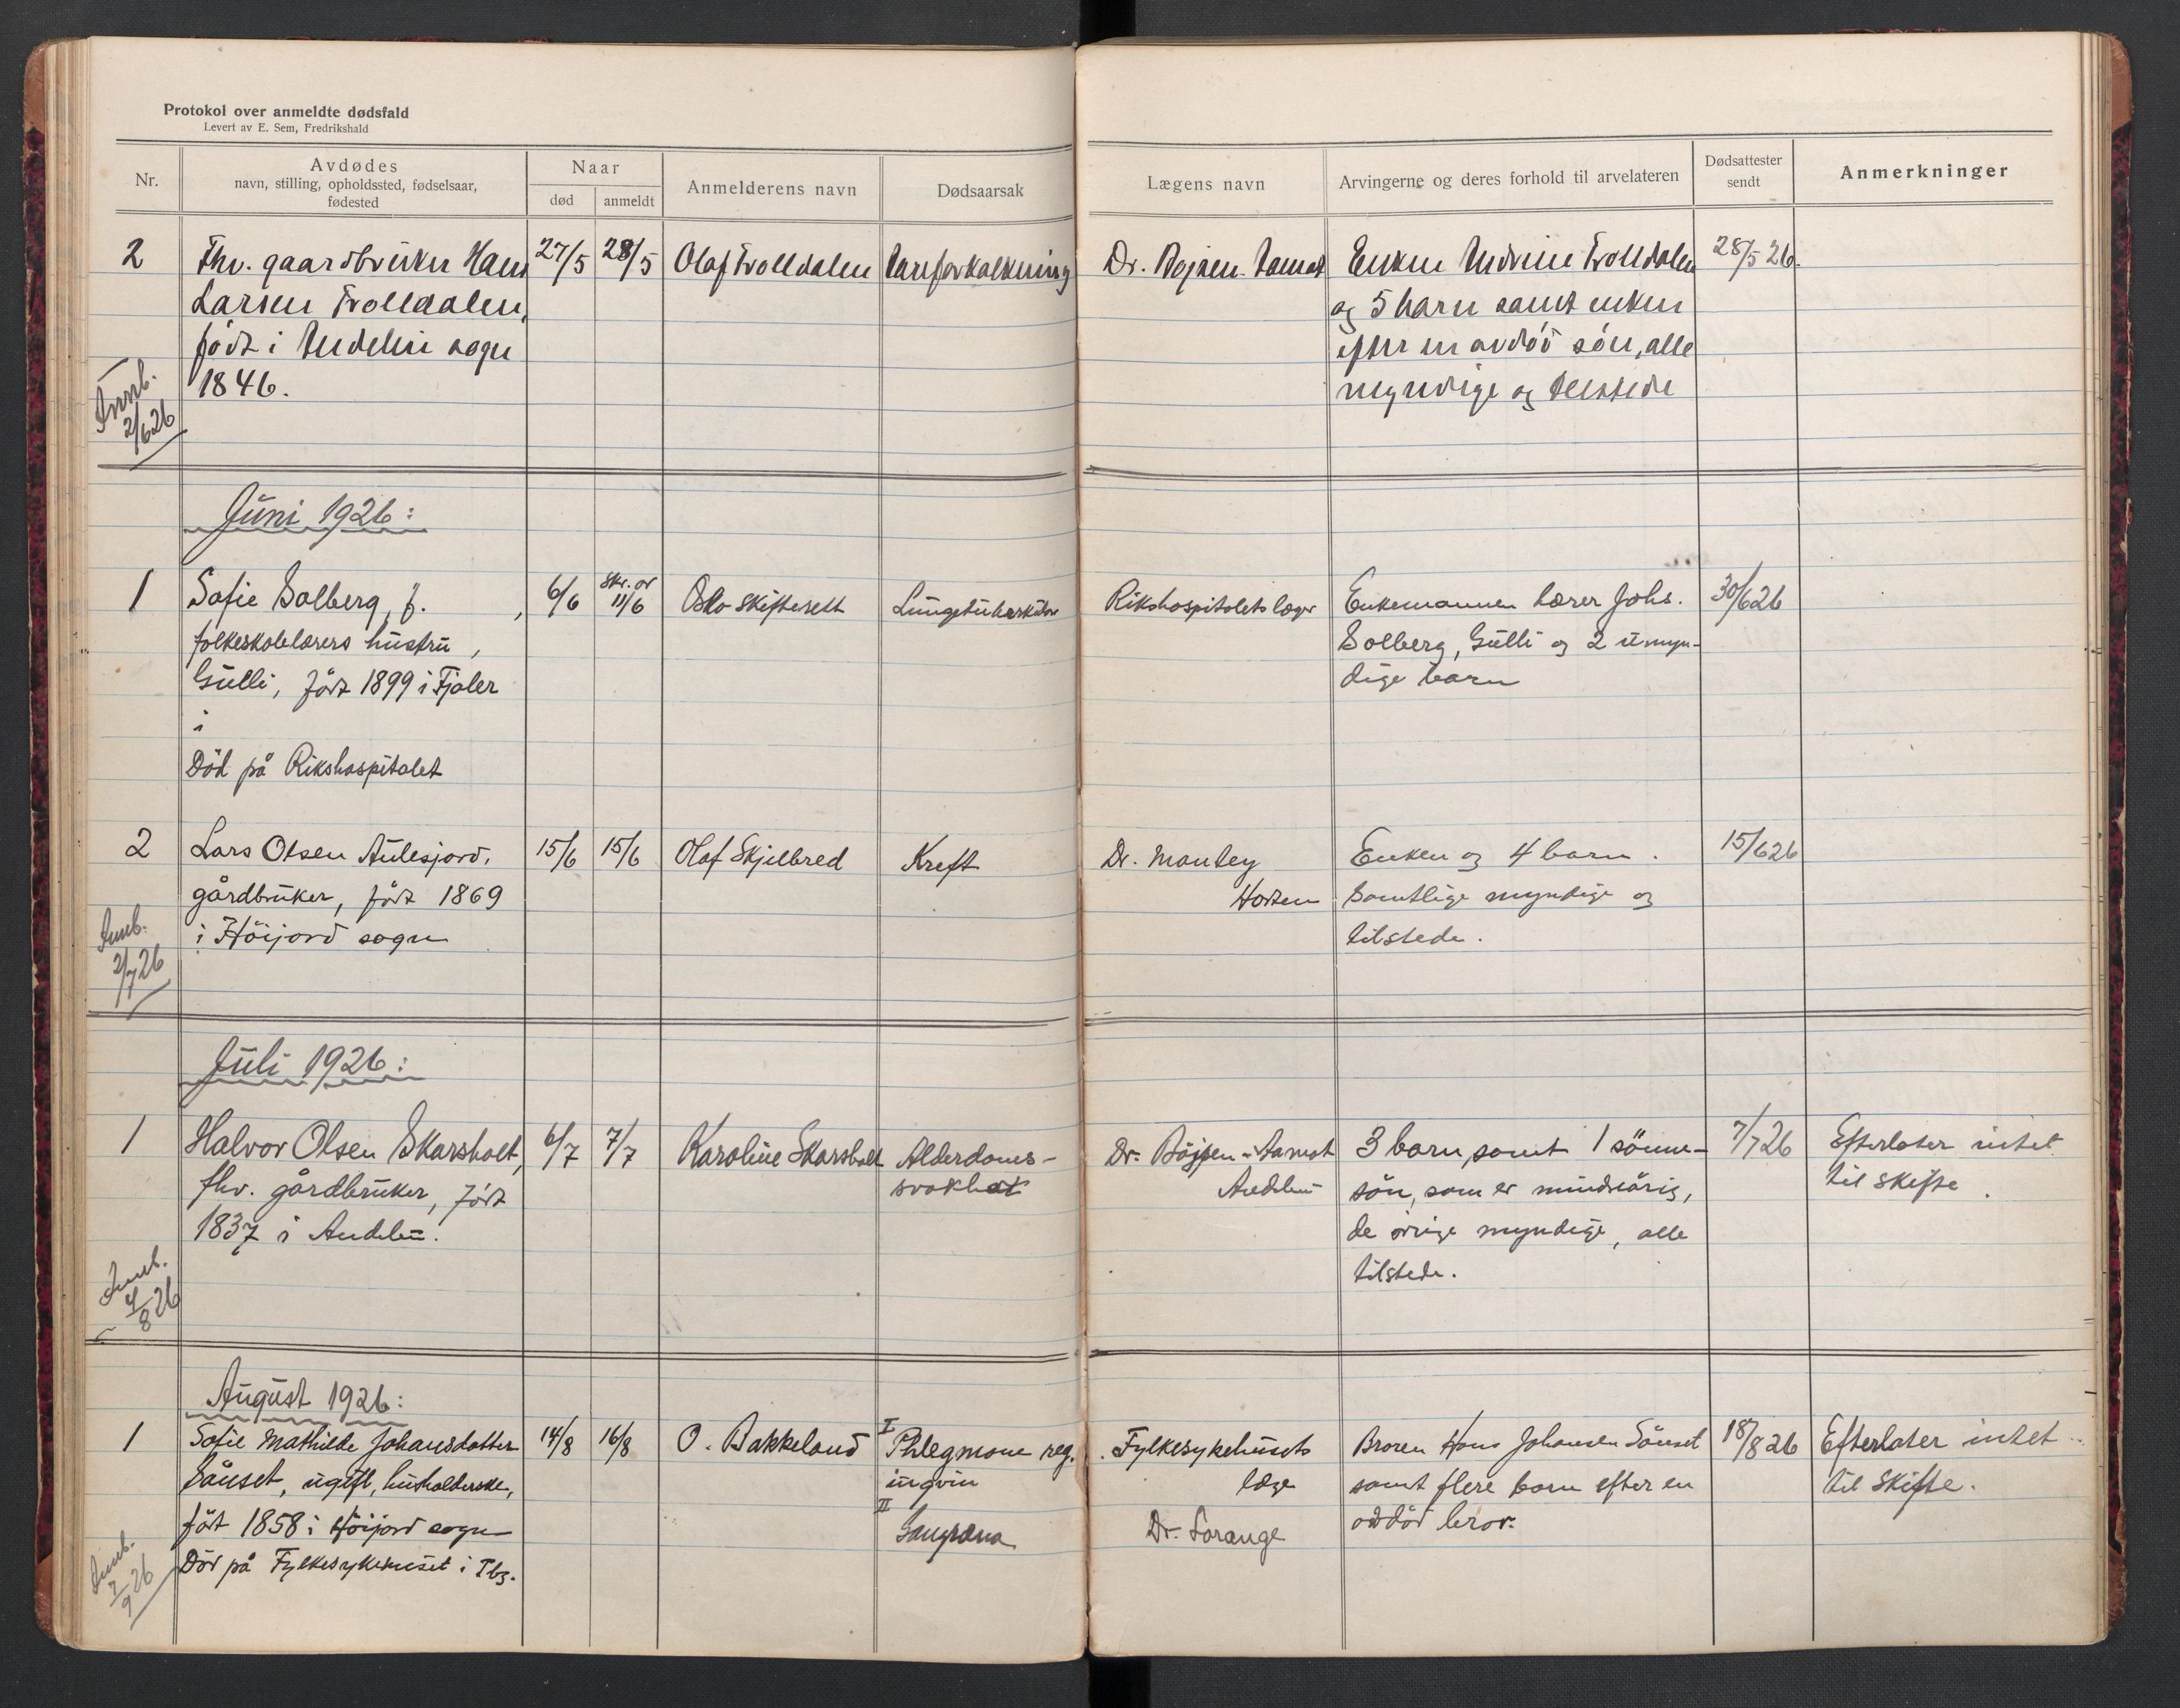 Protokol over anmeldte dødsfald
Levert av E. Sem, Fredrikshald
Nr.
Avdødes
navn, stilling, opholdssted, fødselsaar,
fødested
Naar
død
anmeldt
Anmelderens navn
Dødsaarsak
Lægens navn
Arvingerne og deres forhold til arvelateren
Dødsattester
sendt
Anmerkninger
2
Fhv. gaardbruker Hans
Larsen Trolldalen,
født i Andebu sogn
1846.
27/5
28/5
Olaf Trolldalen
Aareforkalkning
Dr. Bojsen
Enken Andrine Trolldalen
og 5 barn samt enken
efter en avdød søn, alle
myndige og tilstede
28/5 26.
2/6 26
Juni 1926:
1
Sofie Solberg, f. ,
folkeskolelærers hustru ,
Gulli, født 1899 i Fjaler
i
Död på Rikshospitalet
6/6
Skr. av
11/6
Oslo skifterett
Lungetuberkulose
Rikshospitalets læger
Enkemannen lærer Johs.
Solberg, Gulli og 2 umyn-
dige barn
30/6 26
2
Lars Olsen Aulesjord,
gårdbruker, født 1869
i Höijord sogn
15/6
15/6
Olaf Skjelbred
Kreft
Dr. Mantey
Horten
Enken og 4 barn .
samtlige myndige og
tilstede.
15/6 26
2/7 26
Juli 1926:
1
Halvor Olsen Skarsholt,
fhv. gårdbruker, født
1837 i Andebu.
6/7
7/7
Karoline Skarsholt
Alderdoms-
svakhet
Dr. Böjsen
Andebu
3 barn, samt 1 sönne-
sön, som er mindreårig,
de övrige myndige, alle
tilstede.
7/7 26
Efterlater intet
til skifte .
4/8 26
August 1926:
1
Sofie Mathilde Johansdatter
Sånset, ugift, husholderske,
født 1858 i Höijord sogn
Död på Fylkesykehuset i Tbg.
14/8
16/8
O. Bakkeland
I
Phlegmone reg.
ingvin
II
Gangræna
Fylkesykehusets
læge
Dr. Lorange
Broren Hans Johansen Sånset
samt flere barn efter en
avdöd bror.
18/8 26
Efterlater intet
til skifte.
2/9 26